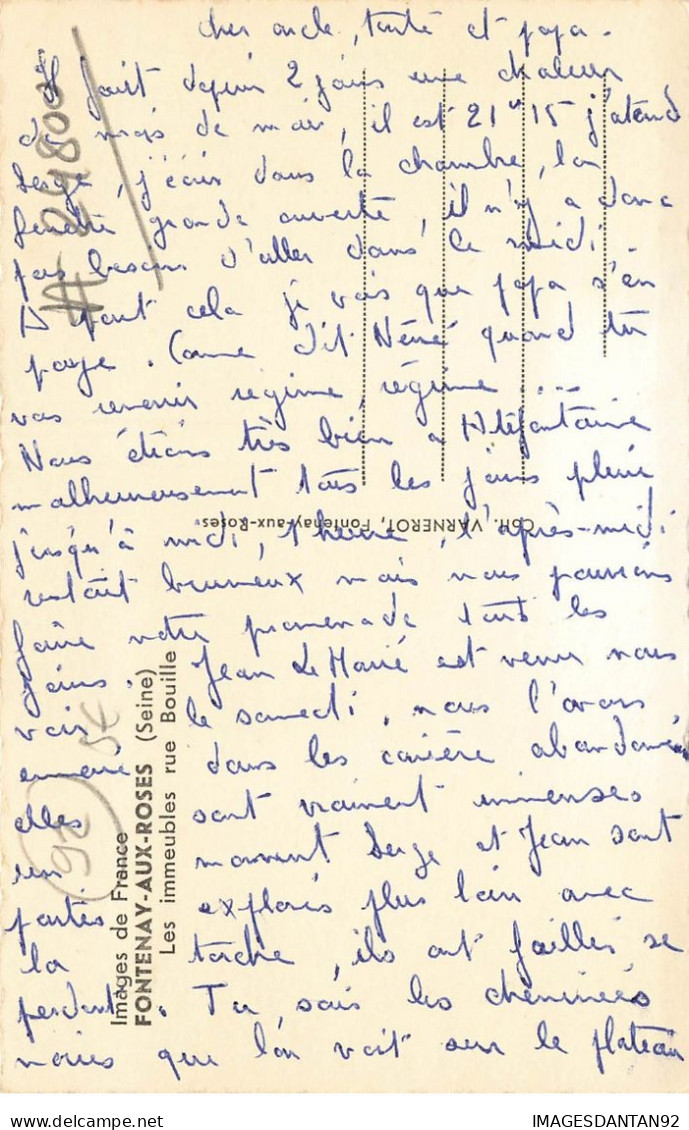 cher oncle, tante et papa.
Il fait depuis 2 jours une chaleur
du mois de mai, il est 21H15 j'atend
Serge, j'écris dans la chambre, la
fenêtre grande ouverte, il n'y a donc
pas besoins d'aller dans le midi.
A part cela je vois que papa s'en
paye. Come dit Néné quand tu
vas revenir régime, régime....
Nous étions très bien a Mtefontaine
malheureusement tous les jours pluie
jusqu'à midi, 1 heure, l'après-midi
restait brumeux mais nous pouvions
faire notre promenade tout les
jours. Jean Le Marié est venu nous
voir le samedi, nous l'avons
emmené dans les carrière abandoné
elles sont vraiment immenses
un moment Serge et Jean sont
partis explorés plus loin avec
la torche, ils ont failles se
perdent. Tu sais les cheminées
noires que l'on voit sur le plateau
Coll. VARNEROT, Fontenay-aux-Roses
Images de France
FONTENAY-AUX-ROSES (Seine)
Les immeubles rue Bouille
92
5€
IMAGESDANTAN92